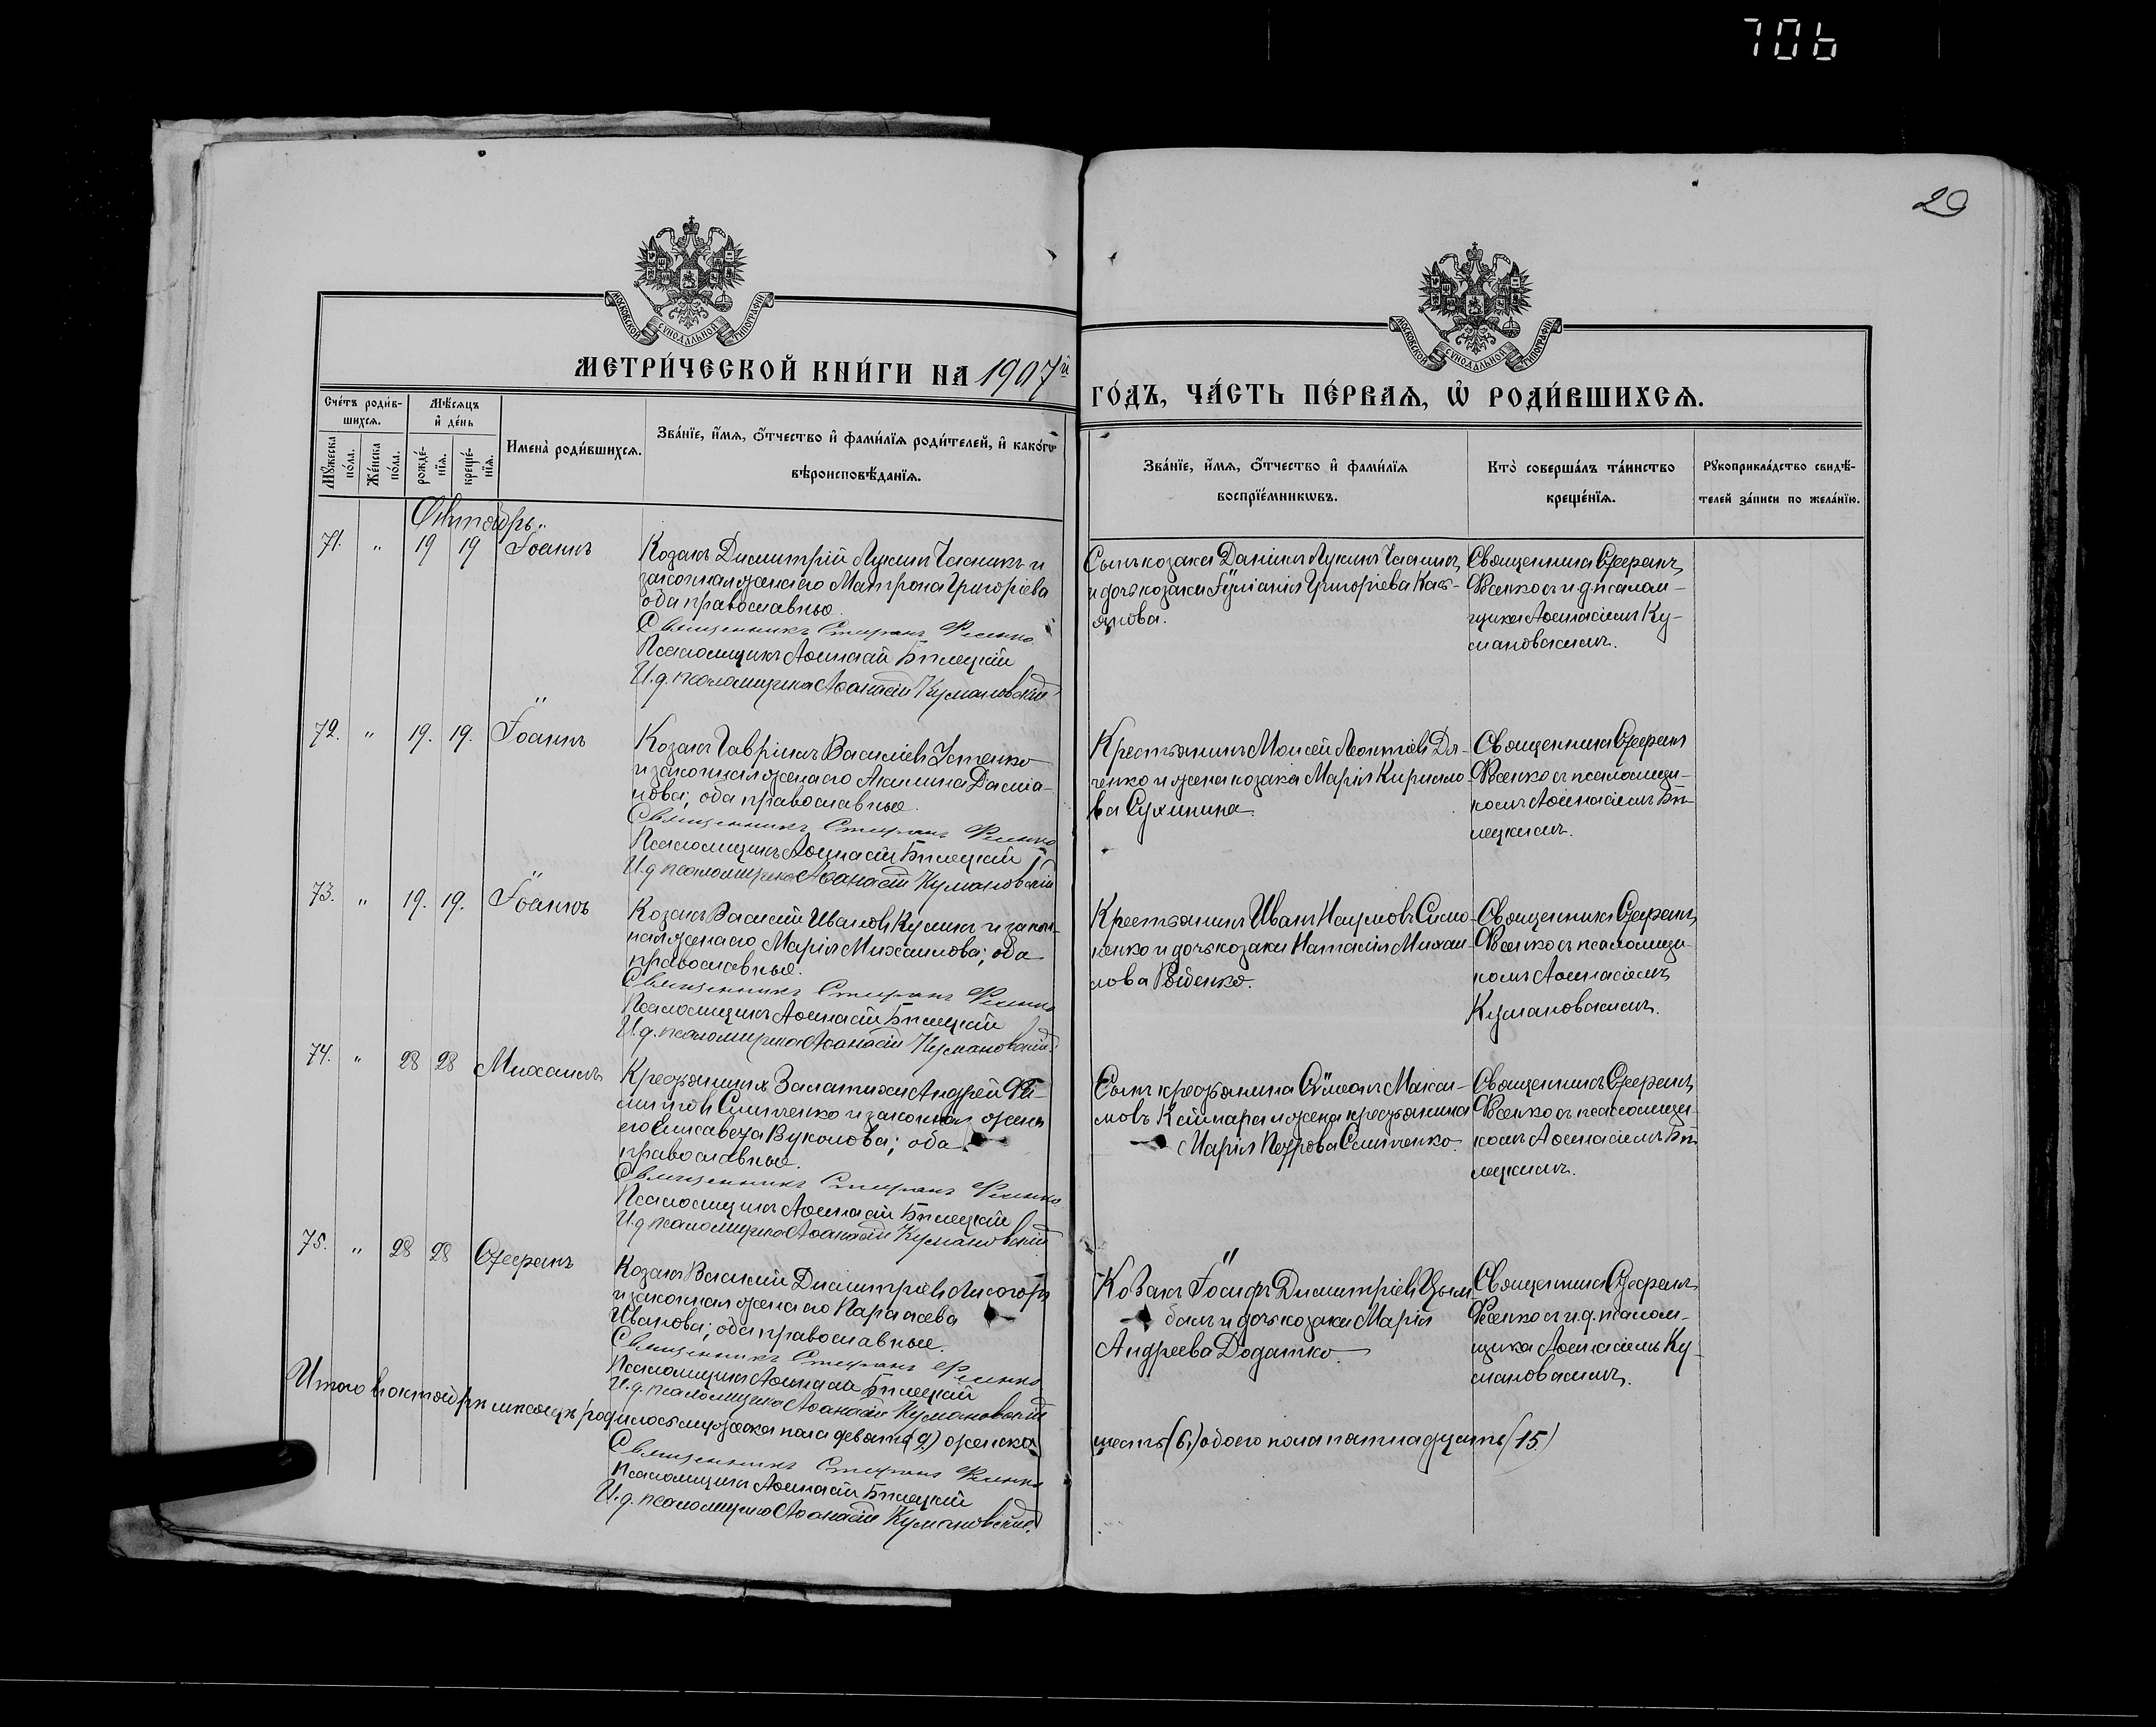 706
29
МОСКОВСКОЙ СѴНОДАЛЬНОЙ ТИПОГРАФІИ
МОСКОВСКОЙ СѴНОДАЛЬНОЙ ТИПОГРАФІИ
МЕТРИ́ЧЕСКОЙ КНИ́ГИ НА 1907й
ГО́ДЪ, ЧА́СТЬ ПЕ́РВАЯ, Ѡ РОДИ́ВШИХСЯ.
Сче́тъ роди́в-
шихся.
Мꙋжеска по́ла.
Же́нска по́ла.
Мѣ́сяцъ
и҆ де́нь
рожде́-
нїя.
креще́-
нїя.
Имена̀ роди́вшихся.
Зва́нїе, и҆́мя, ѻ҆́тчество и҆ фами́лїя роди́телей, и҆ како́гѡ
вѣроисповѣ́данїя.
Зва́нїе, и҆́мя, ѻ҆́тчество и҆ фами́лїя
воспрїе́мникѡвъ.
Кто̀ соверша́лъ та́инство
креще́нїя.
Рꙋкоприкла́дство свидѣ́-
телей за́писи по жела́нїю.
Октябрь
71. " 19 19 Іоаннъ
Козакъ Димитрій Лукинъ и
законная жена его Матрона Григоріева
оба православные.
Священникъ Стефанъ
Псаломщикъ Аѳанасій Бѣлецкій
И.д. псаломщика Аѳанасій Кумановскій
Сынъ козака Даніилъ Лукинъ
и дочь козака Григоріева
Священникъ Стефанъ
съ и.д. псалом-
щика Аѳанасіемъ Ку-
мановскимъ.
72. " 19. 19. Іоаннъ
Козакъ Гавріилъ Василіевъ Устенко
и законная жена его Акилина Даміа-
нова; оба православные.
Священникъ Стефанъ
Псаломщикъ Аѳанасій Бѣлецкій
И.д. псаломщика Аѳанасій Кумановскій
Крестьянинъ Моисей Леонтіевъ Дя-
ченко и жена козака Марія Кирилло-
ва Сухинина.
Священникъ Стефанъ
съ псаломщи-
комъ Аѳанасіемъ Бѣ-
лецкимъ.
73. " 19. 19. Іоаннъ
Козакъ Василій Ивановъ Куликъ и закон-
ная жена его Марія Михаилова; оба
православные.
Священникъ Стефанъ
Псаломщикъ Аѳанасій Бѣлецкій
И.д. псаломщика Аѳанасій Кумановскій
Крестьянинъ Иванъ Наумовъ Симо-
ненко и дочь козака Наталія Михаи-
лова
Священникъ Стефанъ
съ псаломщи-
комъ Аѳанасіемъ
Кумановскимъ.
74. " 28 28 Михаилъ
Крестьянинъ Андрей
Слипченко и законная жена
его Елисавета Вуколова; оба
православные.
Священникъ Стефанъ
Псаломщикъ Аѳанасій Бѣлецкій
И.д. псаломщика Аѳанасій Кумановскій
Сынъ крестьянина Макси-
мовъ и жена крестьянина
Марія Петрова Слипченко.
Священникъ Стефанъ
съ псаломщи-
комъ Аѳанасіемъ Бѣ-
лецкимъ.
75. " 28 28 Стефанъ
Козакъ Василій Димитріевъ Лисогоръ
и законная жена его Параскева
Иванова; оба православные.
Священникъ Стефанъ
Псаломщикъ Аѳанасій Бѣлецкій
И.д. псаломщика Аѳанасій Кумановскій
Козакъ Іосифъ Димитріевъ Цым-
балъ и дочь козака Марія
Андреева Додатко.
Священникъ Стефанъ
съ и.д. псалом-
щика Аѳанасіемъ Ку-
мановскимъ.
Итого въ октябрѣ мѣсяцѣ родилось мужеска пола девять (9) женска
шесть (6) обоего пола пятнадцать (15)
Священникъ Стефанъ
Псаломщикъ Аѳанасій Бѣлецкій
И.д. псаломщика Аѳанасій Кумановскій